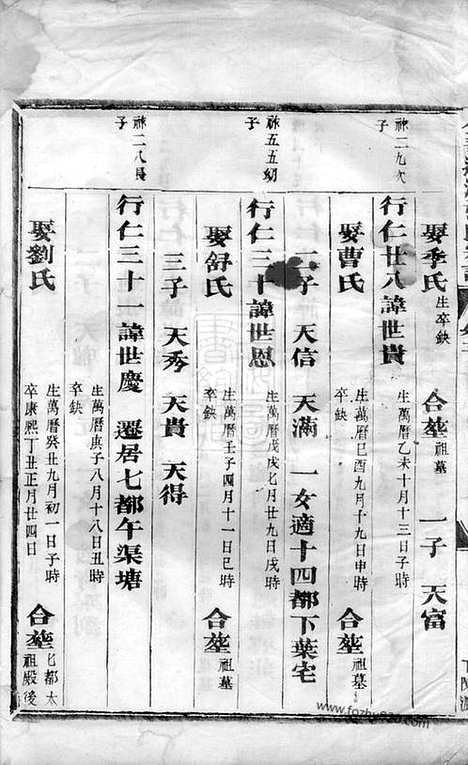 娶季氏 生卒缺 合塟祖墓 一子 天富
祿二九次子
行仁廿八諱世貴 生萬曆乙未十月十三日子時 卒缺
娶曹氏 生萬曆己酉九月十九日申時 卒缺 合塟祖墓
子 天信 天滿 一女適十四都下葉宅
祿五五幼子
行仁三十諱世恩 生萬曆戊戌七月廿九日戌時 卒缺
娶舒氏 生萬曆壬子四月十一日巳時 卒缺 合塟祖墓
三子 天秀 天貴 天得
祿二八長子
行仁三十一諱世慶 遷居七都午渠塘 生萬曆庚子八月十八日丑時
娶劉氏 生萬曆癸丑九月初一日子時 卒康熙丁丑正月廿四日 合塟七都太祖殿後
www.fozhu920.com